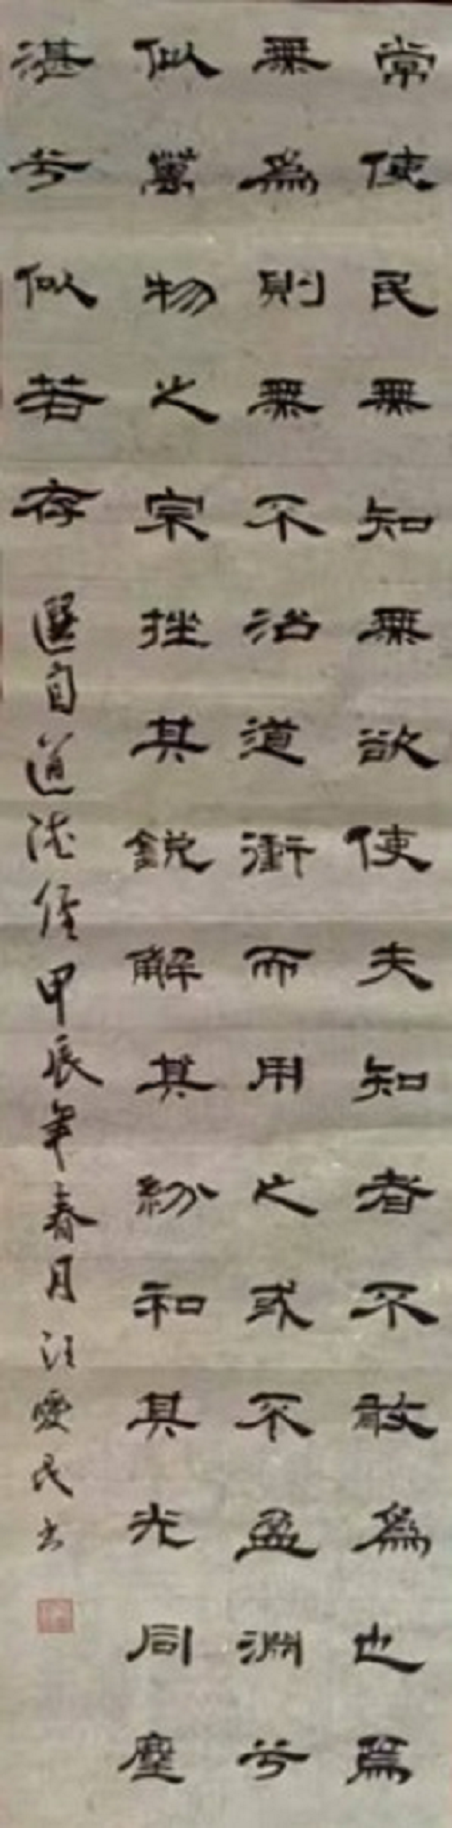 常使民無知無欲使夫知者不敢為也為
無為則無不治道衝而用之或不盈淵兮
似萬物之宗挫其銳解其紛和其光同塵
湛兮似若存
選自道德經甲辰年春月汪愛民書